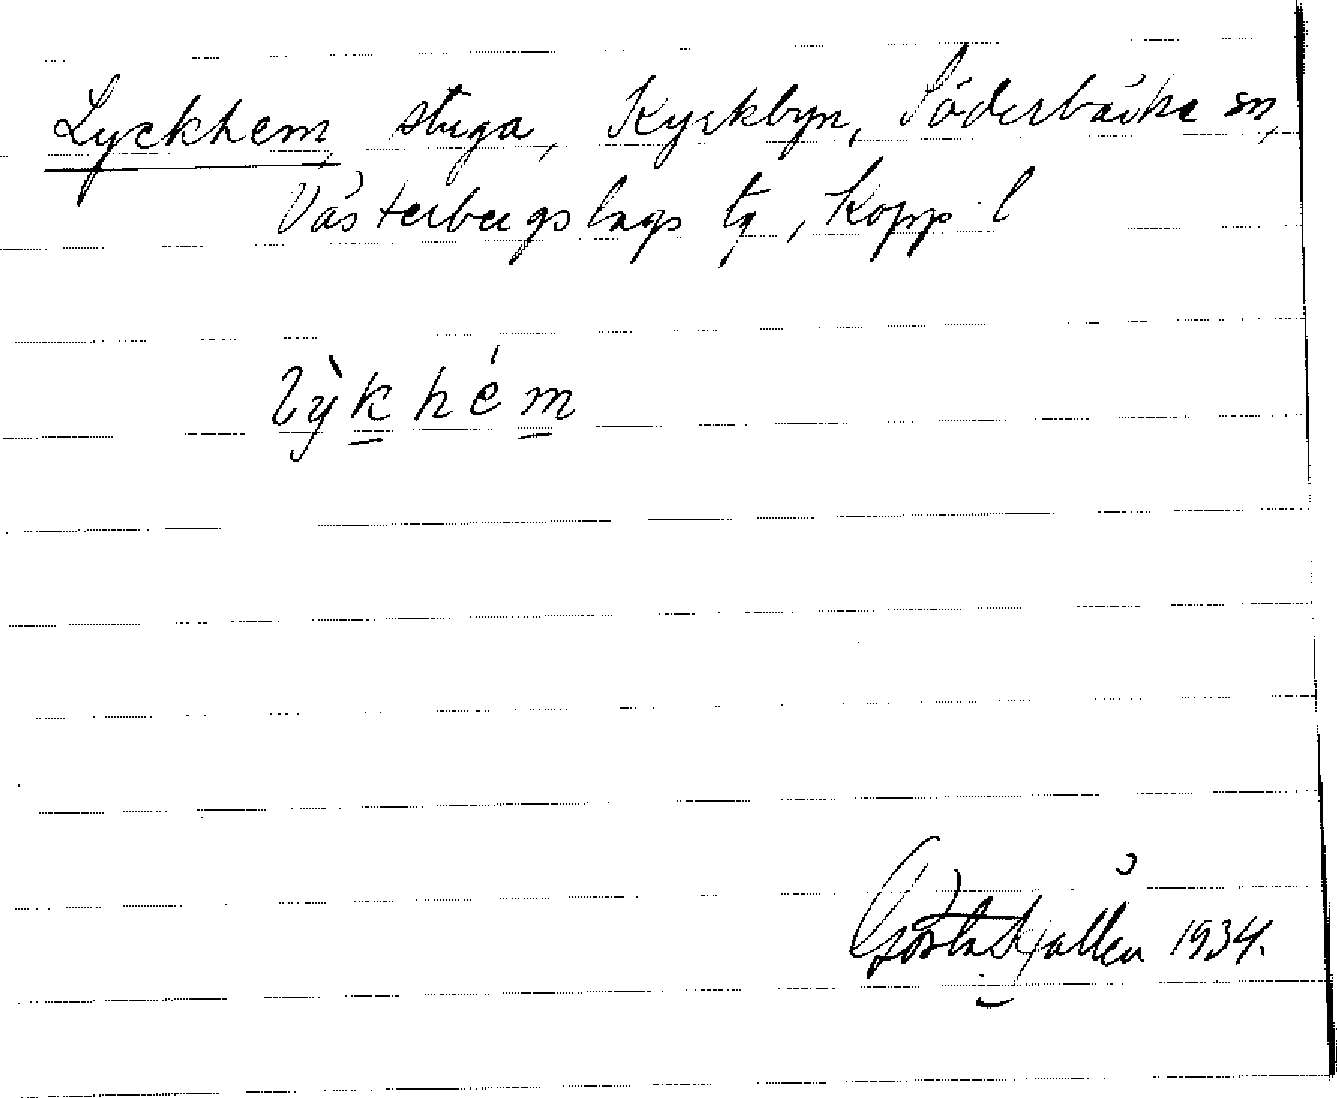 Lyckhem, stuga, Kyrkbyn, Söderbärke sn,
Västerbergslags tg, Kopp. l
lỳkhém
Gösta Kjällén 1934.